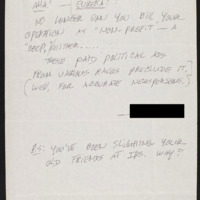 AHA! — EUREKA!
NO LONGER CAN YOU BILL YOUR
OPERATION AS "NON-PROFIT — A
COOP, EITHER.....
THESE PAID POLITICAL ADS
FROM VARIOUS RACES PRECLUDE IT.
FOR NEWSPERSONS.
P.S: YOU'VE BEEN SLIGHTING YOUR
OLD FRIENDS AT IRS. WHY?